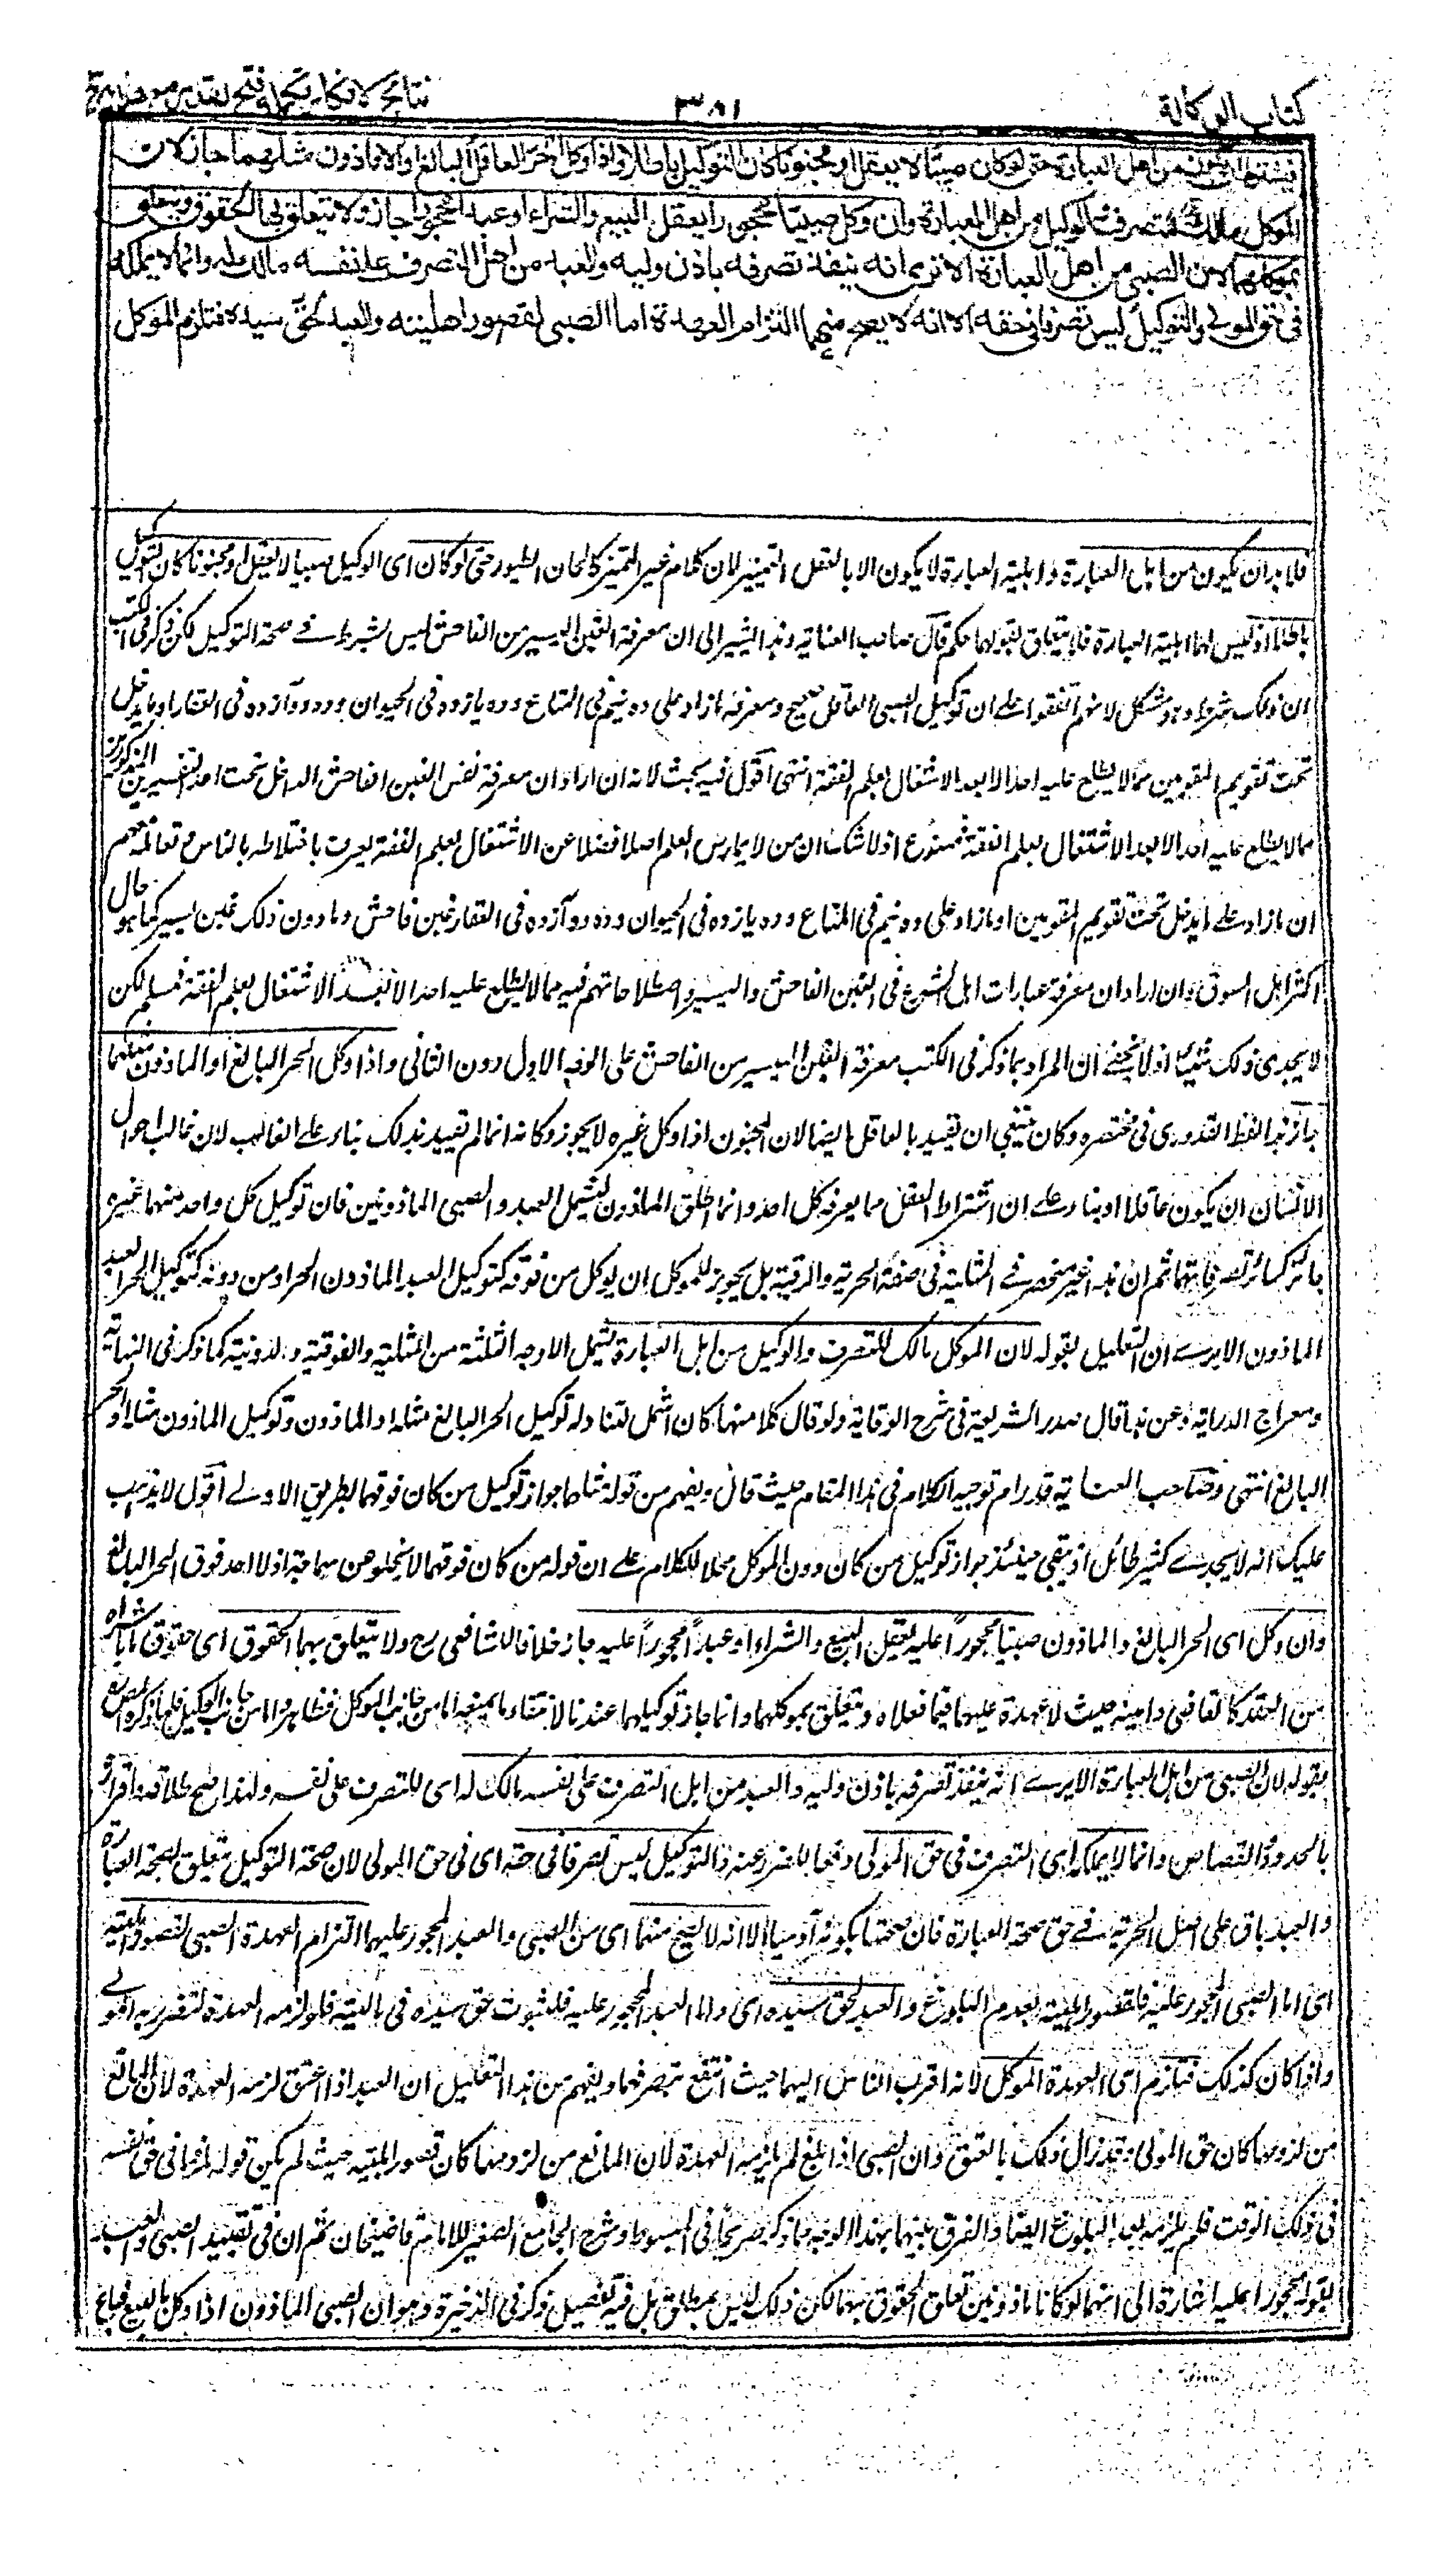 كتاب الوكالة
٣٨١
نتائج الافكار تكملة فتح القدير مع هداية ج
فيشترط ان يكون من اهل العبارة حتى لو كان صبيًا لا يعقل او مجنونا كان التوكيل باطلا واذا وكل الحر العاقل البالغ او الماذون مثلهما جاز لان
الموكل مالك للتصرف والوكيل من اهل العبارة وان وكل صبيًا محجورا يعقل البيع والشراء او عبدا محجورا جاز ولا تتعلق بهما الحقوق ويتعلق
بموكلهما لان الصبي من اهل العبارة الا ترى انه ينفذ تصرفه باذن وليه والعبد من اهل التصرف على نفسه مالك له وانما لا يملكه
في حق المولى والتوكيل ليس تصرفا في حقه الا انه لا يصح منهما التزام العهدة اما الصبي لقصور اهليته والعبد لحق سيده فتلزم الموكل
فلا بد ان يكون من اهل العبارة واهلية العبارة لا يكون الا بالعقل والتمييز لان كلام غير المتميز كالحان الطيور حتى لو كان اى الوكيل صبيا لا يعقل او مجنونا كان التوكيل
باطلا اذ ليس لهما اهلية العبارة فلا يتعلق بقولهما حكم قال صاحب العناية وهذا يشير الى ان معرفة الغبن اليسير من الفاحش ليس بشرط في صحة التوكيل لكن ذكر في الكتب
ان ذلك شرط وهو مشكل لانهم اتفقوا على ان توكيل الصبي العاقل صحيح ومعرفة ما زاد على ده نيم في المتاع وده يازده في الحيوان وده دوازده في العقار او ما يدخل
تحت تقويم المقومين مما لا يطلع عليه احد الا بعد الاشتغال بعلم الفقه انتهى اقول فيه بحث لانه ان اراد ان معرفة نفس الغبن الفاحش الداخل تحت احد التفسيرين المذكورين
مما لا يطلع عليه احد الا بعد الاشتغال بعلم الفقه فممنوع اذ لا شك ان من لا يمارس العلم اصلا فضلا عن الاشتغال بعلم الفقه يعرف باختلاطه بالناس وتعامله معهم
ان ما زاد على ما يدخل تحت تقويم المقومين او ما زاد على ده نيم في المتاع وده يازده في الحيوان وده دوازده في العقار غبن فاحش وما دون ذلك غبن يسير كما هو حال
اكثر اهل السوق وان اراد ان معرفة عبارات اهل الشرع في الغبن الفاحش واليسير واصطلاحاتهم فيه مما لا يطلع عليه احد الا بعد الاشتغال بعلم الفقه فمسلم لكن
لا يجدى ذلك شيئا اذ لا يخفى ان المراد بما ذكر في الكتب معرفة الغبن اليسير من الفاحش على الوجه الاول دون الثاني واذا وكل الحر البالغ او الماذون مثلهما
جاز هذا لفظ القدورى في مختصره وكان ينبغي ان يقيد بالعاقل ايضا لان المجنون اذا وكل غيره لا يجوز وكانه انما لم يقيد بذلك بناء على الغالب لان غالب احوال
الانسان ان يكون عاقلا او بناء على ان اشتراط العقل مما يعرفه كل احد وانما اطلق الماذون ليشمل العبد والصبي الماذونين فان توكيل كل واحد منهما غيره
جائز كسائر تصرفاتهما ثم ان هذا غير منحصر في المثلية في صفة الحرية والرقية بل يجوز للموكل ان يوكل من فوقه كتوكيل العبد الماذون الحر او من دونه كتوكيل الحر العبد
الماذون الا يرى ان التعليل بقوله لان الموكل مالك للتصرف والوكيل من اهل العبارة يشمل الاوجه الثلثة من المثلية والفوقية والدونية كما ذكر في النهاية
ومعراج الدراية وعن هذا قال صدر الشريعة في شرح الوقاية ولو قال كلا منهما كان اشمل لتناوله توكيل الحر البالغ مثله والماذون وتوكيل الماذون مثله والحر
البالغ انتهى وصاحب العناية قد رام توجيه الكلام في هذا المقام حيث قال ويفهم من قوله مثلهما جواز توكيل من كان فوقهما بطريق الاولى اقول لا يذهب
عليك انه لا يجدى كثير طائل اذ يبقى حينئذ جواز توكيل من كان دون الموكل محلا للكلام على ان قوله من كان فوقهما لا يخلو عن سماجة اذ لا احد فوق الحر البالغ
وان وكل اى الحر البالغ والماذون صبيا محجورا عليه يعقل البيع والشراء او عبدا محجورا عليه جاز خلافا للشافعي رح ولا يتعلق بهما الحقوق اى حقوق ما باشراه
من العقد كالقاضي وامينه حيث لا عهدة عليهما فيما فعلاه ويتعلق بموكلهما وانما جاز توكيلهما عندنا لانتفاء ما يمنعه اما من جانب الموكل فظاهر واما من جانب الوكيل فلما ذكره المصنف
بقوله لان الصبي من اهل العبارة الا يرى انه ينفذ تصرفه باذن وليه والعبد من اهل التصرف على نفسه مالك له اى للتصرف على نفسه ولهذا صح طلاقه واقراره
بالحدود والقصاص وانما لا يملكه اى التصرف في حق المولى دفعا للضرر عنه والتوكيل ليس تصرفا في حقه اى في حق المولى لان صحة التوكيل تتعلق بصحة العبارة
والعبد باق على اصل الحرية في حق صحة العبارة فان صحتها بكونه آدميا الا انه لا يصح منهما اى من الصبي والعبد المحجور عليهما التزام العهدة الصبي لقصور اهليته
اى اما الصبي المحجور عليه فلقصور اهليته بعدم البلوغ والعبد لحق سيده اى واما العبد المحجور عليه فلثبوت حق سيده في ماليته فلو لزمه العهدة لتضرر به المولى
واذا كان كذلك فتلزم اى العهدة الموكل لانه اقرب الناس اليهما حيث انتفع بتصرفهما ويفهم من هذا التعليل ان العبد اذا اعتق لزمه العهدة لان المانع
من لزومها كان حق المولى وقد زال ذلك بالعتق وان الصبي اذا بلغ لم يلزمه العهدة لان المانع من لزومها كان قصور اهليته حيث لم يكن قوله ملزما في حق نفسه
في ذلك الوقت فلم يلزمه بعد البلوغ ايضا والفرق بينهما بهذا الوجه مما ذكر صريحا في المبسوط وشرح الجامع الصغير للامام قاضيخان ثم ان في تقييد الصبي والعبد
بقوله محجورا عليه اشارة الى انهما لو كانا ماذونين تعلق الحقوق بهما لكن ذلك ليس بمطلق بل فيه تفصيل ذكر في الذخيرة وهو ان الصبي الماذون اذا وكل بالبيع فباع